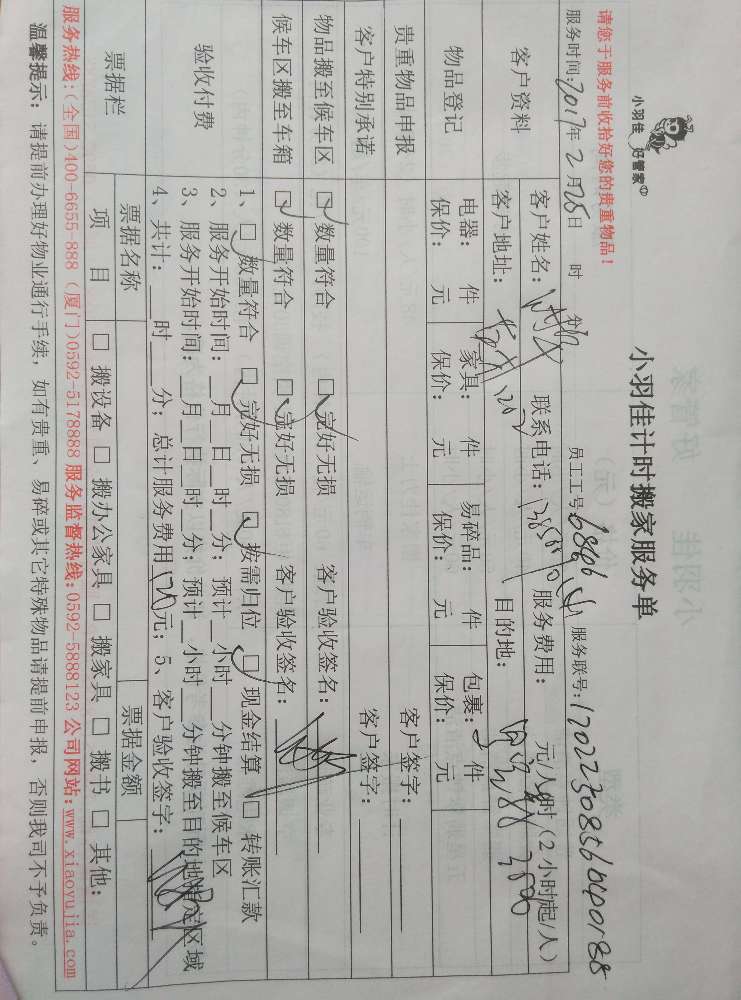 小羽佳 好管家
小羽佳计时搬家服务单
请您于服务前收拾好您的贵重物品！
服务时间：2017年2月25日 时 分 员工工号：服务联号：
客户资料
客户姓名： 联系电话： 服务费用： 元/人/时（2小时起/人）
客户地址： 目的地：
物品登记
电器： 件 家具： 件 易碎品： 件 包裹： 件
保价： 元 保价： 元 保价： 元 保价： 元
贵重物品申报 客户签字：
客户特别承诺 客户签字：
物品搬至候车区 □数量符合 □完好无损 客户验收签名：
候车区搬至车箱 □数量符合 □完好无损 客户验收签名：
验收付费
1、□数量符合 □完好无损 □按需归位 □现金结算 □转账汇款
2、服务开始时间：__月__日__时__分；预计__小时__分钟搬至候车区
3、服务开始时间：__月__日__时__分；预计__小时__分钟搬至目的地指定区域
4、共计：__时__分；总计服务费用 元；5、客户验收签字：
票据栏
票据名称 票据金额
项目 □搬设备 □搬办公家具 □搬家具 □搬书 □其他：
服务热线：(全国)400-6655-888（厦门)0592-5178888 服务监督热线：0592-5888123 公司网站：www.xiaoyujia.com
温馨提示：请提前办理好物业通行手续，如有贵重、易碎或其它特殊物品请提前申报，否则我司不予负责。